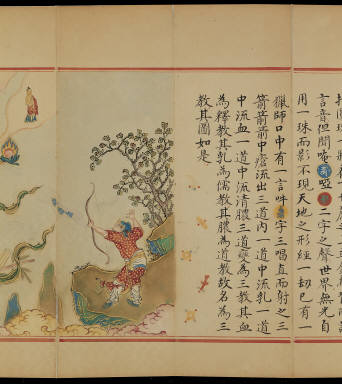 言音但聞唵啞二字之聲世界無光自
用一珠而影不現天地之形經一劫已有一
獵師口中有一言吽字三唱直而射之三
箭箭箭中瘡流出三道內一道中流乳一道
中流血一道中流清膿三道變為三教其血
為釋教其乳為儒教其膿為道教故名為三
教其圖如是